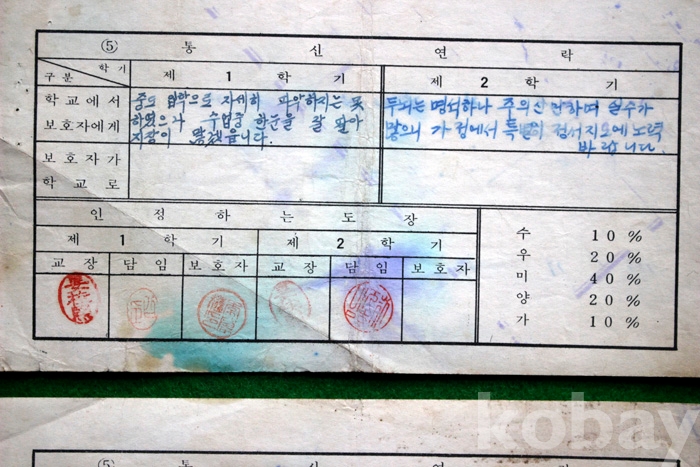 ⑤ 통 신 연 락
학 기
구 분
제 1 학 기
제 2 학 기
학교에서
보호자에게
중도 입학으로 자세히 파악하지는 못
하였으나 수업중 한눈을 잘 팔아
지장이 많겠읍니다.
두뇌는 명석하나 주의심 산하며 실수가
많으니 가정에서 특별히 정서지도에 노력
바랍니다
보호자가
학교로
인 정 하 는 도 장
제 1 학 기
제 2 학 기
교 장
담 임
보 호 자
교 장
담 임
보 호 자
수 10%
우 20%
미 40%
양 20%
가 10%
kobay
⑤ 통 신 연 락